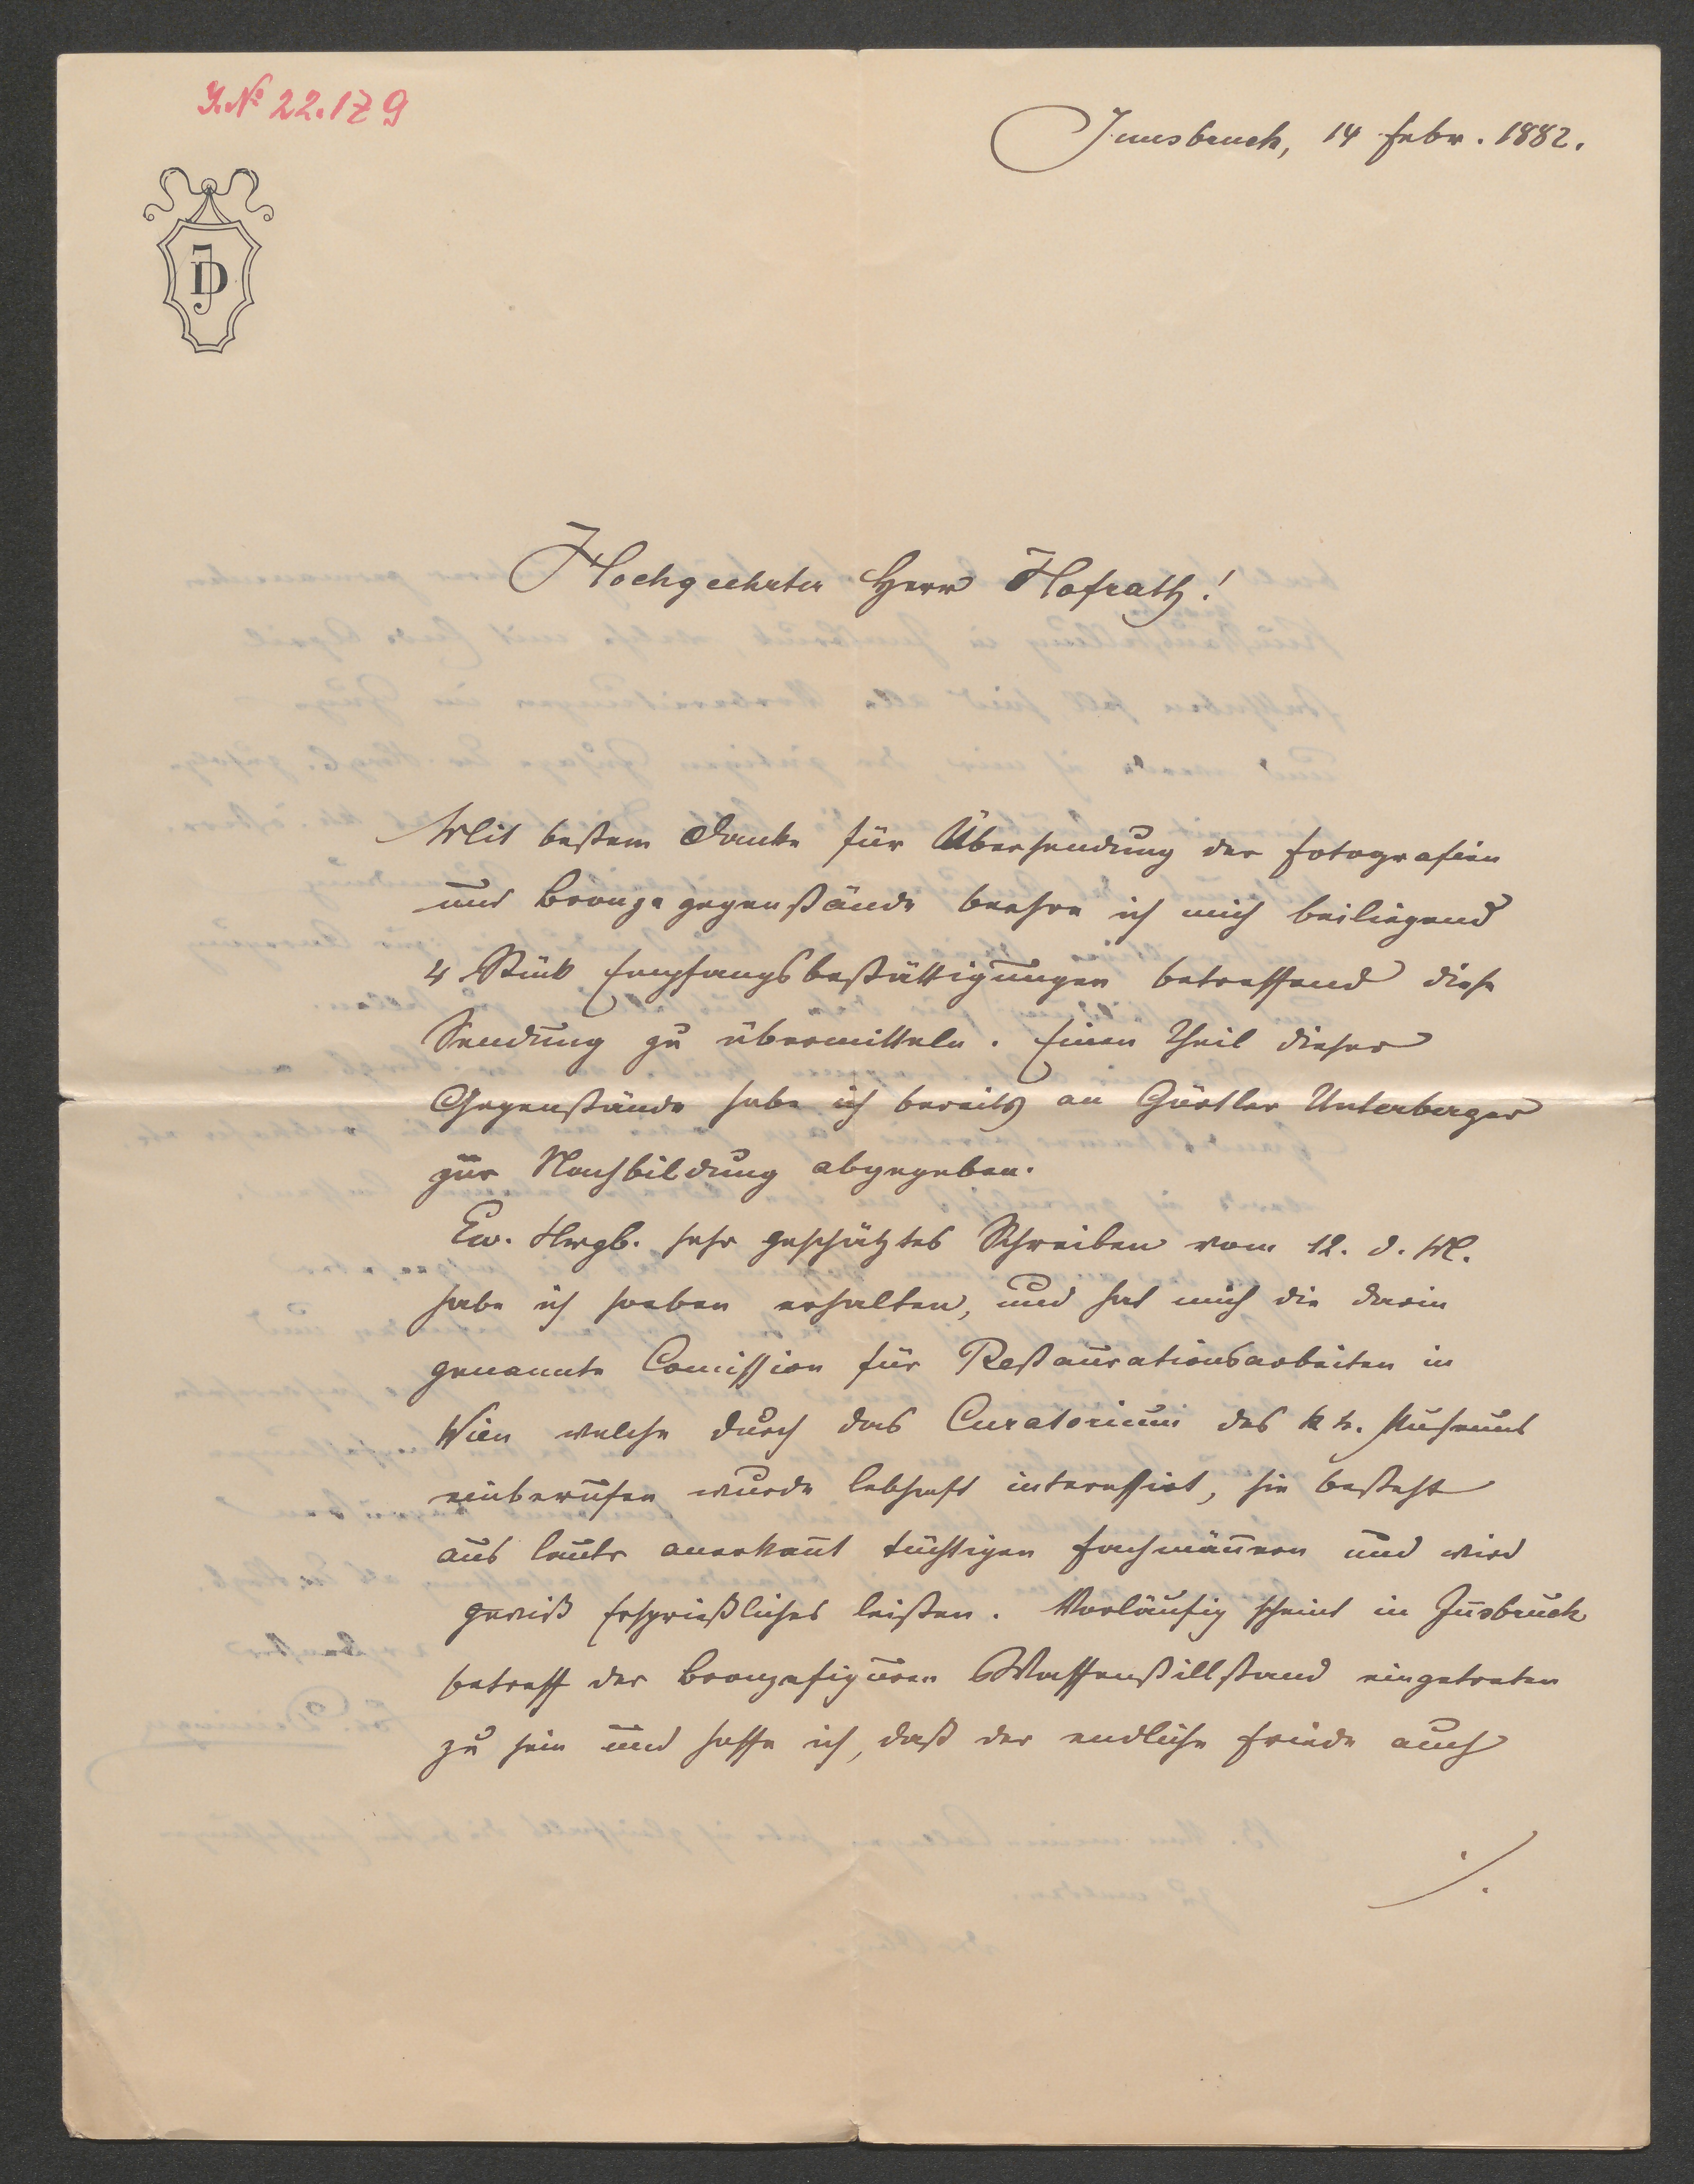 I.N° 22.179
Innsbruck, 14 Febr. 1882.
JD
Hochgeehrter Herr Hofrath!
Mit bestem Danke für Übersendung der Fotografien
und Bronzegegenstände beehre ich mich beiliegend
4 Stück Empfangsbestättigungen betreffend diese
Sendung zu übermitteln. Einen Theil dieser
Gegenstände habe ich bereits an Gürtler Unterberger
zur Nachbildung abgegeben.
Ew. Hwgb. sehr geschätztes Schreiben vom 12. d. M.
habe ich soeben erhalten, und hat mich die darin
genannte Comission für Restaurationsarbeiten in
Wien welche durch das Curatorium des k k. Museums
einberufen wurde lebhaft interessirt, sie besteht
aus lauter anerkan̄t tüchtigen Fachmän̄ern und wird
gewiß Ersprießliches leisten. Vorläufig scheint in In̄sbruck
betreff der Bronzefiguren Waffenstillstand eingetreten
zu sein und hoffe ich, daß der endliche Friede auch
./.